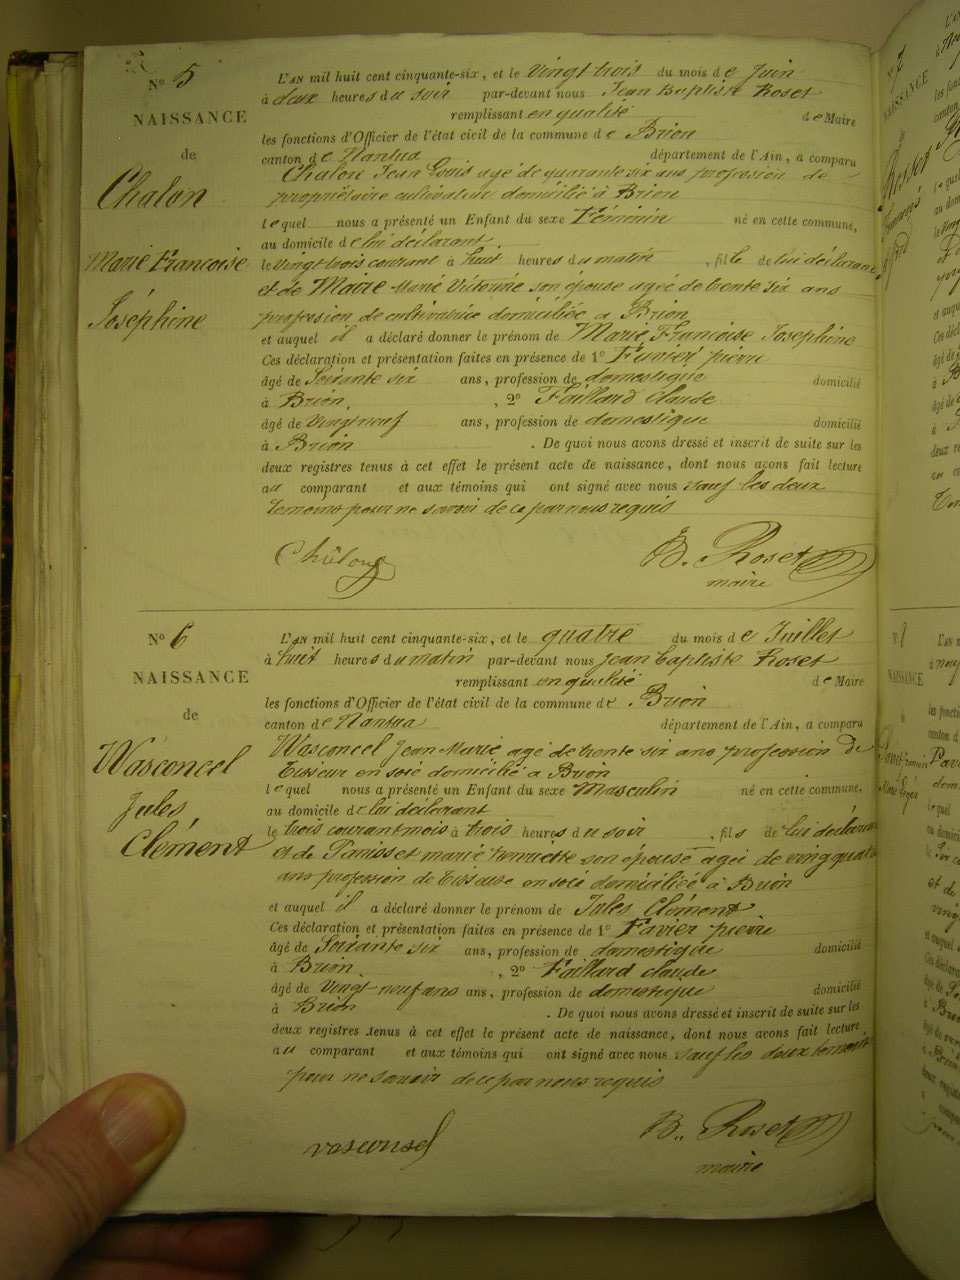 N° 5
NAISSANCE
de
Chalon
Marie Francoise
Joséphine
L'AN mil huit cent cinquante-six, et le vingt trois du mois de Juin
à deux heures du soir par-devant nous Jean Baptiste Roset
remplissant en qualité de Maire
les fonctions d'Officier de l'état civil de la commune de Brion
canton de Nantua département de l'Ain, a comparu
Chalon Jean Louis agé de quarante six ans profession de
propriétaire cultivateur domicilié à Brion
lequel nous a présenté un Enfant du sexe Féminin né en cette commune,
au domicile de lui déclarant
le vingt trois courant à huit heures du matin, fille de lui déclarant
et de Maire Marie Victorine son épouse agée de trente six ans
profession de cultivatrice domiciliée à Brion
et auquel il a déclaré donner le prénom de Marie Francoise Josephine
Ces déclaration et présentation faites en présence de 1° pierre
âgé de Soixante six ans, profession de domestique domicilié
à Brion, 2° Faillard Claude
âgé de vingt neuf ans, profession de domestique domicilié
à Brion. De quoi nous avons dressé et inscrit de suite sur les
deux registres tenus à cet effet le présent acte de naissance, dont nous avons fait lecture
au comparant et aux témoins qui ont signé avec nous sauf les deux
temoins pour ne savoir de ce par nous requis
Châlon
B. Roset
maire
N° 6
NAISSANCE
de
Wasconcel
Jules
Clément
L'AN mil huit cent cinquante-six, et le quatre du mois de Juillet
à huit heures du matin par-devant nous Jean Baptiste Roset
remplissant en qualité de Maire
les fonctions d'Officier de l'état civil de la commune de Brion
canton de Nantua département de l'Ain, a comparu
Wasconcel Jean Marie agé de trente six ans profession de
tisseur en soie domicilié a Brion
lequel nous a présenté un Enfant du sexe Masculin né en cette commune,
au domicile de lui déclarant
le trois courant mois à trois heures du soir, fils de lui déclarant
et de Panisset marie henriette son épouse agée de vingt quatre
ans profession de tisseuse en soie domiciliée à Brion
et auquel il a déclaré donner le prénom de Jules Clément
Ces déclaration et présentation faites en présence de 1° Favier pierre
âgé de Soixante six ans, profession de domestique domicilié
à Brion, 2° Faillard claude
âgé de vingt neuf ans ans, profession de domestique domicilié
à Brion. De quoi nous avons dressé et inscrit de suite sur les
deux registres tenus à cet effet le présent acte de naissance, dont nous avons fait lecture
au comparant et aux témoins qui ont signé avec nous sauf les deux temoins
pour ne savoir de ce par nous requis
vasconsel
B. Roset
maire